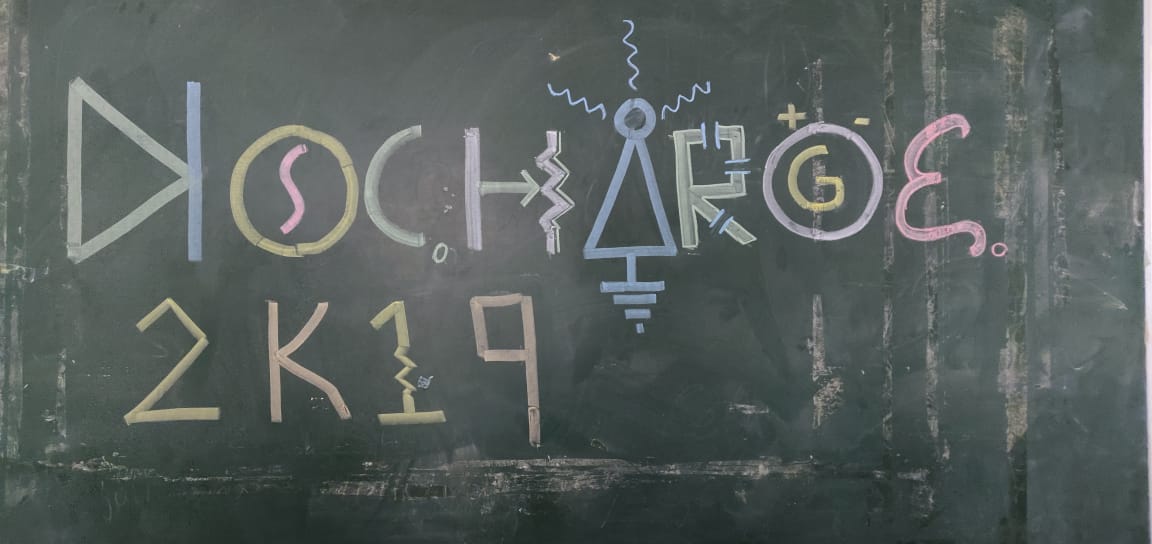 DISCHARGE
2K19